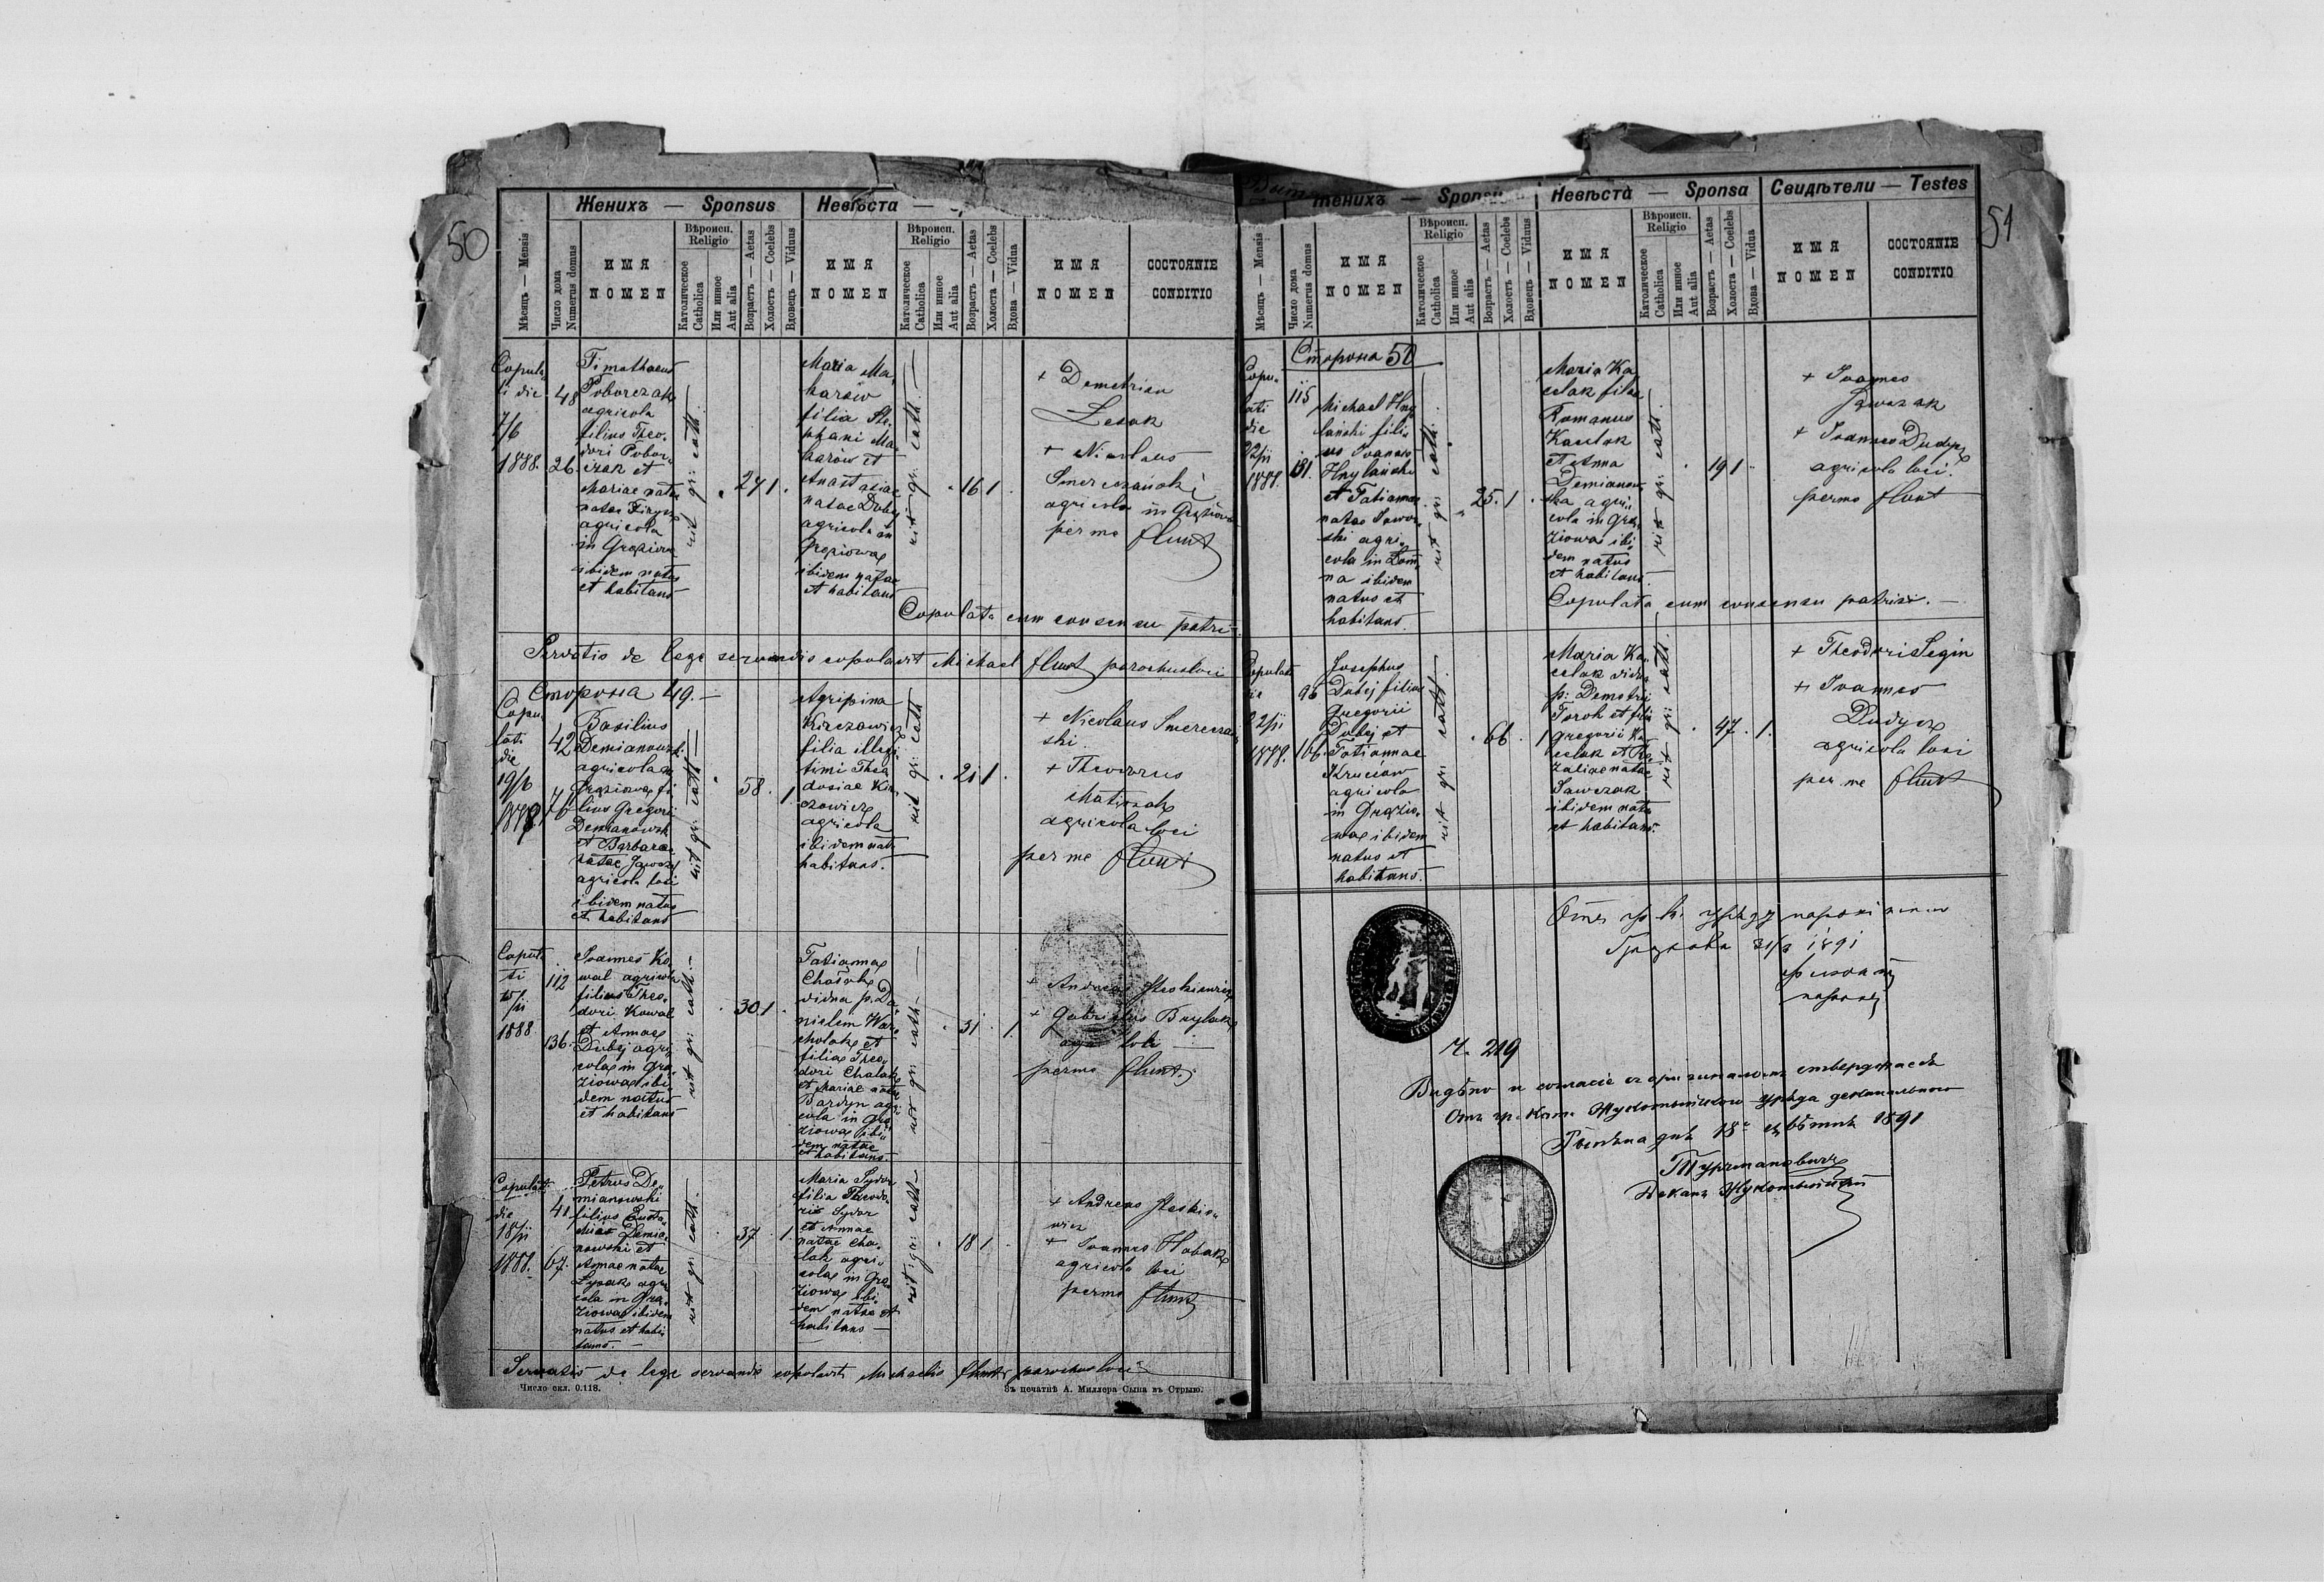 50
Женихъ — Sponsus
Невѣста —
Мѣсяцъ — Mensis
Число дома
Numerus domus
ИМЯ
NOMEN
Вѣроисп.
Religio
Католическое
Catholica
Или инное
Aut alia
Возрастъ — Aetas
Холостъ — Coelebs
Вдовецъ — Viduus
ИМЯ
NOMEN
Вѣроисп.
Religio
Католическое
Catholica
Или инное
Aut alia
Возрастъ — Aetas
Холоста — Coelebs
Вдова — Vidua
ИМЯ
NOMEN
СОСТОЯНІЕ
CONDITIO
Copula
ti die
7/6
1888.
48
26.
Timotheus
Poborczak
agricola
filius Theo-
dori Pobor-
czak et
Mariae natae
agricola
in Gręziowa
ibidem natus
et habitans
rit. gr. cath.
24 1.
Maria Ma-
karów
filia Ste-
phani Ma-
karów et
Anastasiae
natae Dubej
agricola in
Gręziowa
ibidem natae
et habitans
rit. gr. cath.
16 1
+ Demetrius
Lesak
+ Nicolaus
Smereczański
agricola in Gręziowa
per me
Copulata cum consensu patris
Servatis de lege servandis copulavit Michael parochus loci
Сторона 49.
Copu-
lati
die
19/6
1888.
42
76
Basilius
Demianowski
agricola in
Gręziowa fi-
lius Gregorii
Demianowski
et Barbarae
natae
agricola loci
ibidem natus
et habitans
rit. gr. cath.
58. 1
Agripina
Kirczowicz
filia illegi-
timi Theo-
dosiae Kir-
czowicz
agricola
ibidem nata
habitans.
rit. gr. cath
21 1.
+ Nicolaus Smereczań-
ski
+ Theodorus
Matiszak
agricola loci
per me
Copula-
ti
15/11
1888
112
136.
Joannes Ko-
wal agricola
filius Theo-
dori Kowal
et Annae
Dubej agri-
colae in Grę-
ziowa ibi-
dem natus
et habitans
rit. gr. cath.
30 1.
Tatianna
Chalak
vidua p. Da-
nielem War-
cholak et
filia Theo-
dori Chalak
et Mariae natae
Bardyn agri-
cola in Grę-
ziowa ibi-
dem natae
et habitans
rit. gr. cath.
31. 1.
+ Andreas
+ Gabrielus Brylak
agr. loci
per me
Copulati
die
18/11
1888.
41
67.
Petrus De-
mianowski
filius
Demia-
nowski et
Annae natae
Łysak agri-
cola in Grę-
ziowa ibidem
natus et habi-
tans.
rit. gr. cath.
37. 1.
Maria Sydor
filia Theodo-
ris Sydor
et Annae
natae Cha-
lak agri-
colae in Grę-
ziowa ibi-
dem natae et
habitans
rit. gr. cath.
18 1
+ Andreas
wicz
+ Joannes Hobak
agricola loci
per me
Servatis de lege servandis copulavit Michaelis parochus loci
Число скл. 0.118.
Въ печатнѣ А. Миллера Сына въ Стрыю.
51
Женихъ —
Невѣста — Sponsa
Свидѣтели — Testes
Мѣсяцъ — Mensis
Число дома
Numerus domus
ИМЯ
NOMEN
Вѣроисп.
Religio
Католическое
Catholica
Или инное
Aut alia
Возрастъ — Aetas
Холостъ — Coelebs
Вдовецъ — Viduus
ИМЯ
NOMEN
Вѣроисп.
Religio
Католическое
Catholica
Или инное
Aut alia
Возрастъ — Aetas
Холоста — Coelebs
Вдова — Vidua
ИМЯ
NOMEN
СОСТОЯНІЕ
CONDITIO
Сторона 50
Copu-
lati
die
22/11
1888.
115
131.
Michael Hny-
lański fili-
us Joannes
Hnylański
et Tatianna
natae Jawor-
ski agri-
cola in Łom-
na ibidem
natus et
habitans.
rit. gr. cath.
25. 1.
Maria Ka-
celak filia
Romanus
Kacelak
et Anna
Demianow-
ska agri-
cola in Grę-
ziowa ibi-
dem natus
et habitans.
rit. gr. cath.
19 1
+ Joannes
+ Joannes Dudycz
agricola loci.
per me
Copulata cum consensu patris. —
Copulati
die
22/11
1888.
96
106
Josephus
Dubej filius
Gregorii
Dubej et
Tatiannae
Kruciow
agricola
in Gręzio-
wa ibidem
natus et
habitans.
rit. gr. cath.
66. 1
Maria Ka-
celak vidua
p. Demetrii
Toroh et filia
Gregorii Ka-
celak et Ro-
zaliae natae
Sawczak
ibidem nata
et habitans.
rit. gr. cath.
47. 1.
+ Theodori Segin
+ Joannes
Dudycz
agricola loci
per me
31/8 1891
Ч. 219
Видѣно и согласіе съ оригиналомъ стверджаесь
Отъ гр. кат. Жукотынского уряда деканального
днѣ 18 1891
Деканъ Жукотынскій